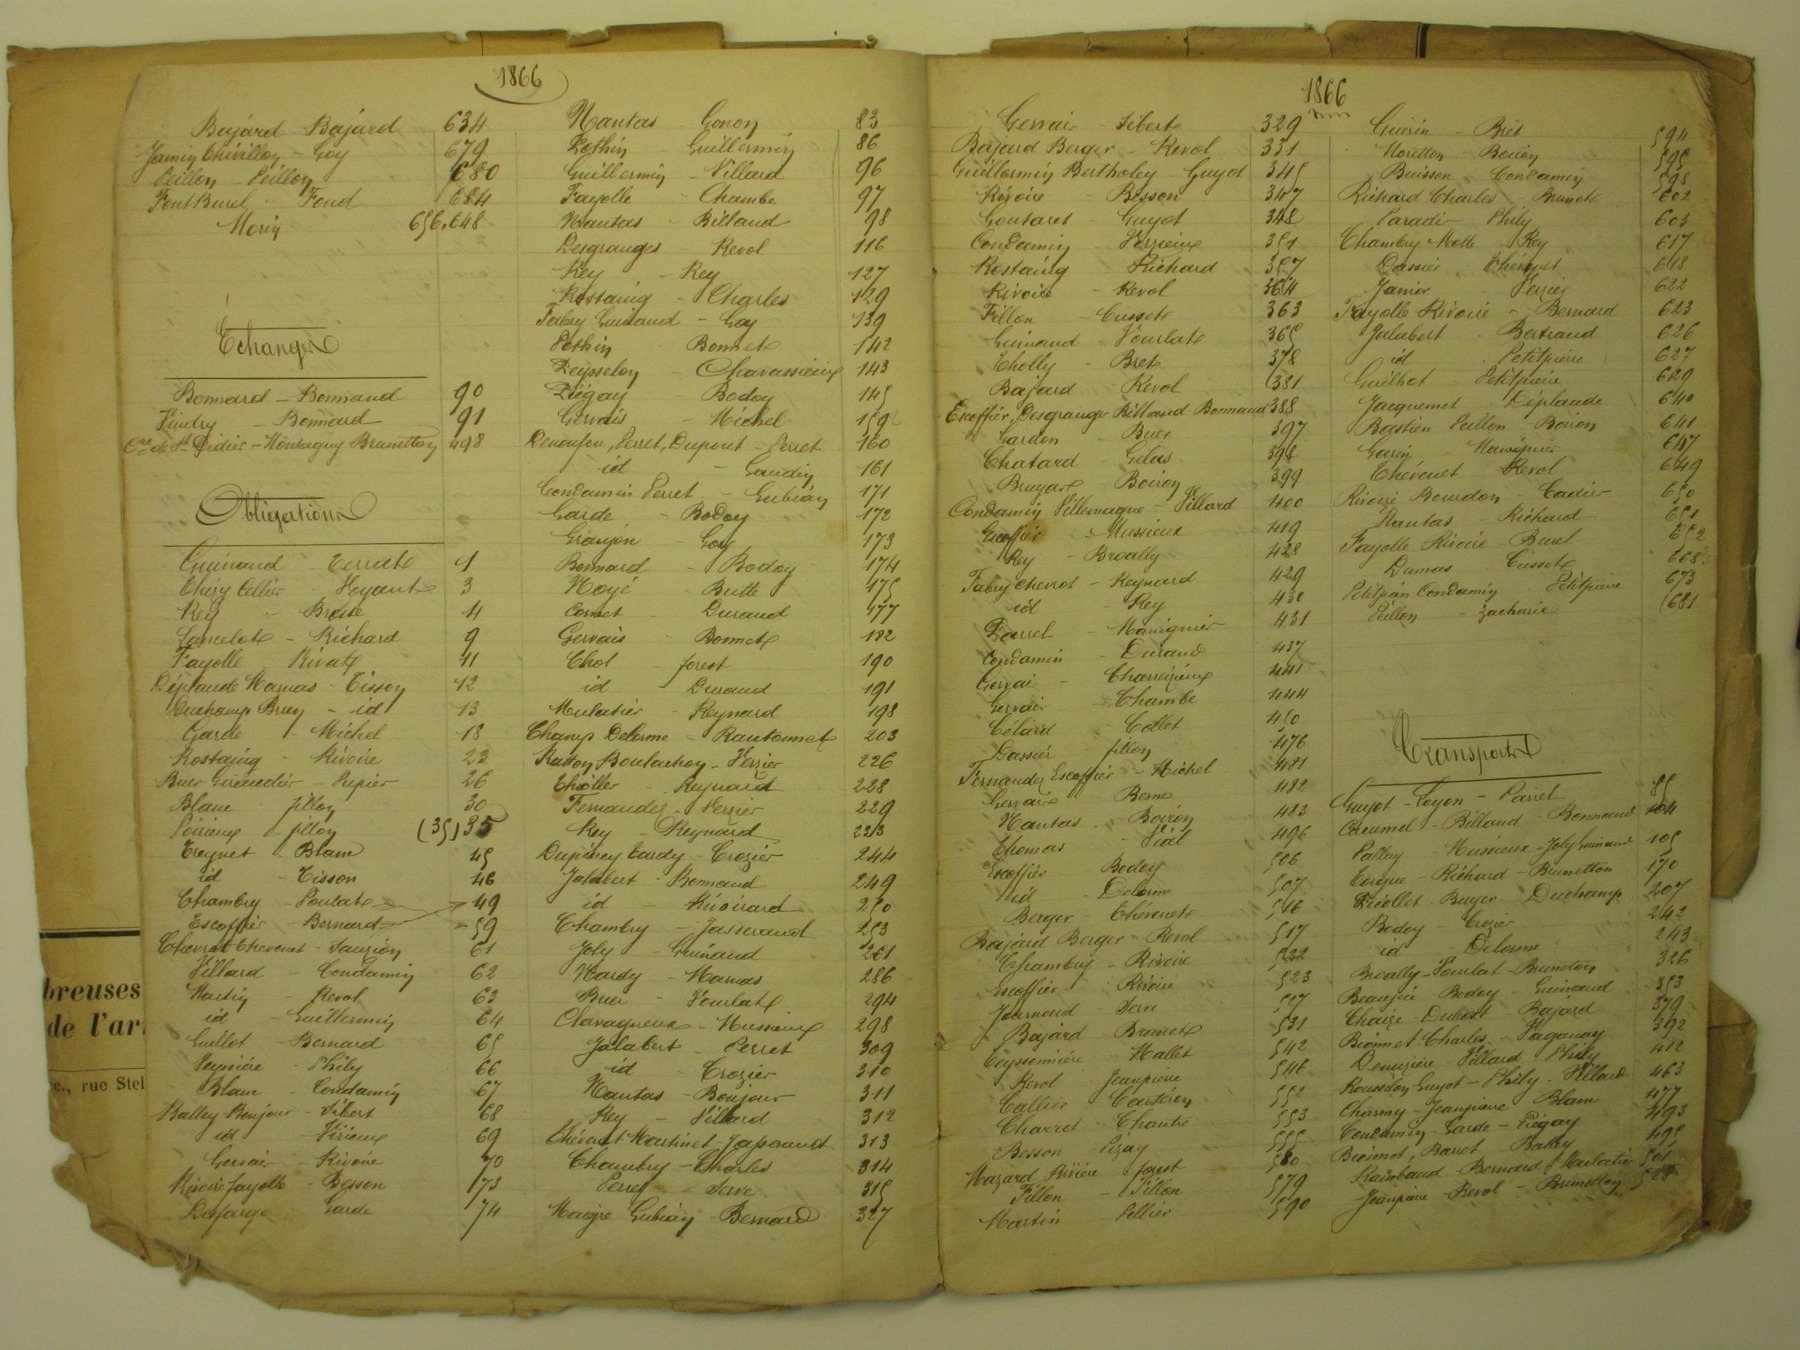 1866
Bajard - Bajard 634
Jamin Thivillon - Goy 679
Peillon - Peillon 680
Font Burel - Fond 684
Morin 656, 648
Echanges
Bonnard - Bonnand 90
Bonnard 91
Cne de St Didier - Montagny Brunetton 498
Obligations
Guinand - Terrate 1
Thiry Cellier - Noyant 3
Rey - Brosse 4
Lancelot - Richard 9
Fayolle - Rivat 11
Déplaude Marnas - Tisson 12
Duchamp Bruy - id 13
Garde - Michel 18
Rostaing - Rivoire 22
Buer Giraudier - Pupier 26
Blanc - fillon 30
Poirieux - fillon (35) 35
Treynet - Blanc 45
id - Tisson 46
Chambry - Poulat 49
Escoffier - Bernard 59
Chevrot Thevenet - Sauzion 61
Villard - Condamin 62
Martin - Revol 63
id - Guillermin 64
Guillot - Bernard 65
Veyrière - Phily 66
Blanc - Condamin 67
Balley Bonjour - Sibert 68
id - Virieux 69
Gervais - Rivoire 70
Rivoire fayolle - Besson 73
Desfarge - Garde 74
Nantas - Gonon 83
Pothin - Guillermin 86
Guillermin - Villard 96
Fayolle - Chambe 97
Nantas - Billaud 98
Desgranges - Revol 116
Rey - Rey 127
Rostaing - Charles 129
Fabry Guinand - Goy 139
Pothin - Bonnet 142
Peysselon - Chavassieux 143
Piégay - Bodoy 145
Gervais - Michel 159
Denoufoux, Perret, Dupont - Perret 160
id - Gaudin 161
Condamin Perret - Gubian 171
Garde - Bodoy 172
Granjon - Goy 173
Bonnard - Bodoy 174
Noyé - Butte 175
Cornet - Durand 177
Gervais - Bonnet 182
Chol - forest 190
id - Durand 191
Mulatier - Reynard 198
Champ Delorme - Rantonnet 203
Ratton Boulachon - Verzier 226
Thioller - Reynard 228
Fernandez - Verzier 229
Rey - Reynard 223
Dupinay Tardy - Crozier 244
Jalabert - Bonnand 249
id - Thiollard 250
Chambry - Jasserand 253
Joly - Guinand 261
Nardy - Marnas 286
Buer - Vourlat 294
Chavagneux - Mussieux 298
Jalabert - Perret 309
id - Crozier 310
Nantas - Bonjour 311
Rey - Villard 312
Thévenet Martinet - Japeaud 313
Chambry - Charles 314
Perret - Serve 315
Maigre Gubian - Bernard 327
1866
Gervais - Sibert 329
Bajard Berger - Revol 331
Guillermin Bertholey - Guyot 345
Rivoire - Besson 347
Goutaret - Guyot 348
Condamin - Verzieux 351
Rostaing - Richard 357
Rivoire - Revol 364
Fillon - Cusset 363
Guinand - Vourlat 365
Cholly - Bret 378
Bajard - Revol (381
Escoffier, Desgranges Billand Bonnand 388
Gardon - Buer 397
Chatard - Gelas 398
Bruyas - Boiron 399
Condamin Villemagne - Villard 400
Escoffier - Mussieux 419
Rey - Broally 428
Fabry Chevrot - Reynard 429
id - Rey 430
Pourret - Mavignier 431
Condamin - Durand 437
Gervais - Charrezieux 441
Gervais - Chambe 444
Célard - Collet 450
Dassier - fillon 476
Fernandez Escoffier - Michel 481
Gervais - Berne 482
Nantas - Boiron 483
Thomas - Vial 496
Escoffier - Bodoy 506
id - Delorme 507
Berger - Thévenet 516
Bajard Berger - Revol 517
Chambry - Rivoire 522
Escoffier - Rivoire 523
Journoud - Serve 527
Bajard - Brunet 531
Teyssonnière - Mallet 542
Revol - Jeanpierre 546
Callier - Carteron 552
Charret - Chantre 553
Besson - Pizay 555
Mazard Rivière - forest 580
Fillon - Fillon 579
Martin - Pellier 590
Guérin - Biet 594
Moretton - Boiron 595
Buisson - Condamin 598
Richard Charles - Brunet 602
Paradis - Phily 603
Chambry Motte - Rey 617
Dassier - Thévenet 618
Janier - Verzier 622
Fayolle Rivoire - Bernard 623
Jalabert - Bertrand 626
id - Petitpierre 627
Guilhot - Petitpierre 629
Jacquemet - Déplaude 640
Bastien Peillon - Boiron 641
Garin - Mavignier 647
Thévenet - Revol 649
Rivoire Bourdon - Cadier 650
Nantas - Richard 651
Fayolle Rivoire - Burel 652
Dumas - Cusset 668
Petitjean Condamin - Petitpierre 673
Peillon - Zacharie (681
Transports
Guyot - Loyon - Parret 85
Coeumel - Billaud - Bonnand 104
Pallay - Mussieux - Joly Guinand 105
Torgue - Richard - Brunetton 170
Violet - Buyer - Duchamp 207
Bodoy - Crozier 242
id - Delorme 243
Broally - Vourlat - Brunetton 326
Beaujeu - Bodoy - Guinand 353
Chaize - Dubost - Bajard 379
Bionnet Charles - Paganay 392
Demezière - Villard - Phily 412
Roussillon Guyot - Phily - Villard 463
Charmy - Jeanpierre - Blanc 477
Condamin - Garde - Piégay 493
Buimot, Barret - Balley 495
Raimbaud - Bernard - Mulatier 501
Jeanpierre - Revol - Brunetton
breuses
de l'ar
rue Stel